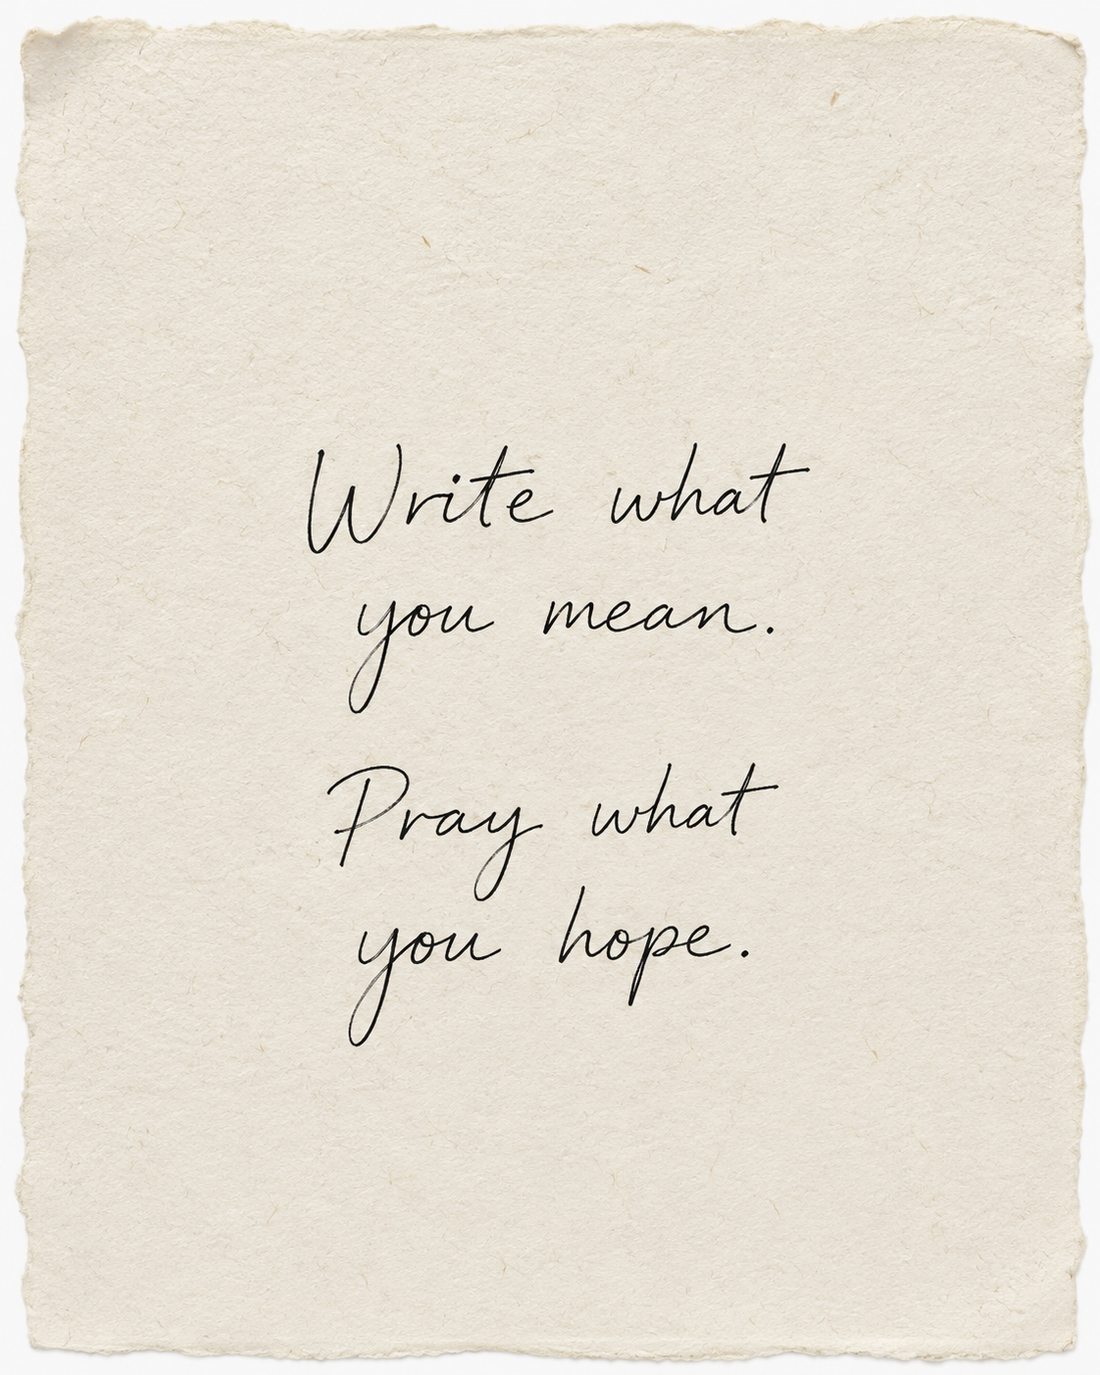 Write what
you mean.
Pray what
you hope.